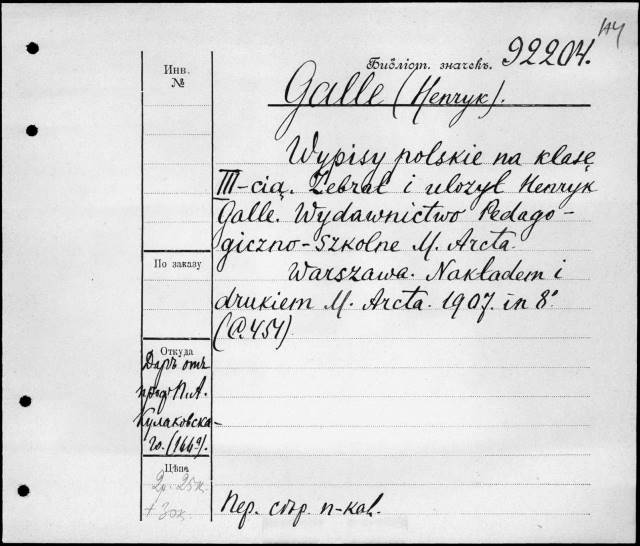 144
Библіот. значекъ. 92204.
Инв.
№
Galle (Henryk).
Wypisy polskie na klasę
III-cią. Zebrał i ułożył Henryk
Galle. Wydawnictwo Pedago-
giczno-Szkolne M. Arcta.
По заказу
Warszawa. Nakładem i
drukiem M. Arcta. 1907. in 8°
(C. 454)
Откуда
Даръ отъ
проф. П. А.
Кулаковска-
го. (1669).
Цѣна
2р. 25к.
+ 30к.
Пер. сѣр. п-кал.